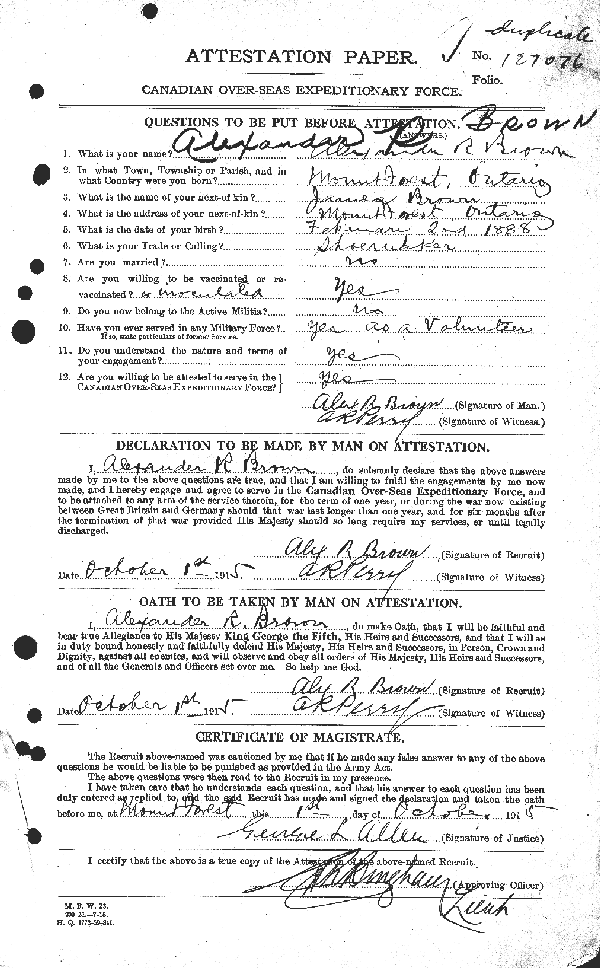 duplicate
ATTESTATION PAPER.
No. 127076
Folio.
CANADIAN OVER-SEAS EXPEDITIONARY FORCE.
QUESTIONS TO BE PUT BEFORE ATTESTATION.
(ANSWERS.)
Alexander R BROWN
1. What is your name? Alexander R Brown
2. In what Town, Township or Parish, and in
what Country were you born? Mount Forest, Ontario
3. What is the name of your next-of-kin? Brown
4. What is the address of your next-of-kin? Mount Forest Ontario
5. What is the date of your birth? February 2nd 1888
6. What is your Trade or Calling? Shoemaker
7. Are you married? no
8. Are you willing to be vaccinated or re-
vaccinated? or inoculated Yes
9. Do you now belong to the Active Militia? no
10. Have you ever served in any Military Force? Yes as a Volunteer
If so, state particulars of former Service.
11. Do you understand the nature and terms of
your engagement? yes
12. Are you willing to be attested to serve in the
CANADIAN OVER-SEAS EXPEDITIONARY FORCE? yes
Alex R Brown (Signature of Man.)
A R Perry (Signature of Witness.)
DECLARATION TO BE MADE BY MAN ON ATTESTATION.
I, Alexander R Brown, do solemnly declare that the above answers
made by me to the above questions are true, and that I am willing to fulfil the engagements by me now
made, and I hereby engage and agree to serve in the Canadian Over-Seas Expeditionary Force, and
to be attached to any arm of the service therein, for the term of one year, or during the war now existing
between Great Britain and Germany should that war last longer than one year, and for six months after
the termination of that war provided His Majesty should so long require my services, or until legally
discharged.
Alex R Brown (Signature of Recruit)
Date October 1st 1915 A R Perry (Signature of Witness)
OATH TO BE TAKEN BY MAN ON ATTESTATION.
I, Alexander R. Brown, do make Oath, that I will be faithful and
bear true Allegiance to His Majesty King George the Fifth, His Heirs and Successors, and that I will as
in duty bound honestly and faithfully defend His Majesty, His Heirs and Successors, in Person, Crown and
Dignity, against all enemies, and will observe and obey all orders of His Majesty, His Heirs and Successors,
and of all the Generals and Officers set over me. So help me God.
Alex R Brown (Signature of Recruit)
Date October 1st 1915 A R Perry (Signature of Witness)
CERTIFICATE OF MAGISTRATE.
The Recruit above-named was cautioned by me that if he made any false answer to any of the above
questions he would be liable to be punished as provided in the Army Act.
The above questions were then read to the Recruit in my presence.
I have taken care that he understands each question, and that his answer to each question has been
duly entered as replied to, and the said Recruit has made and signed the declaration and taken the oath
before me, at Mount Forest this 1st day of October, 1915
George L Allen (Signature of Justice)
I certify that the above is a true copy of the Attestation of the above-named Recruit.
(Approving Officer)
Lieut
M. F. W. 23.
H. Q. 1772-39-841.